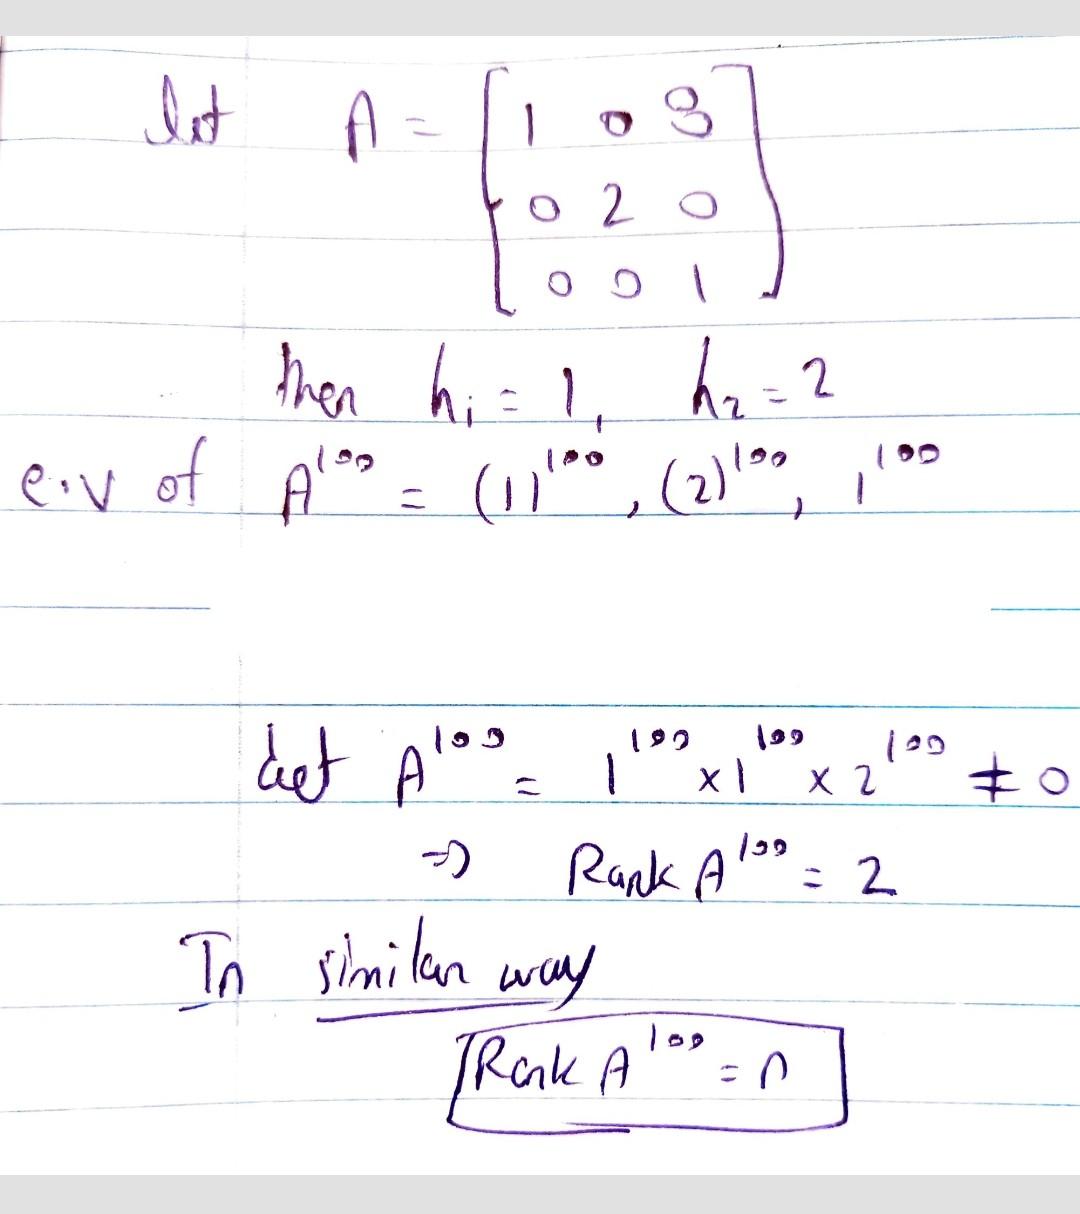 let A = [ 1 0 3
0 2 0
0 0 1 ]
then h₁ = 1, h₂ = 2
e.v of A¹⁰⁰ = (1)¹⁰⁰, (2)¹⁰⁰, 1¹⁰⁰
det A¹⁰⁰ = 1¹⁰⁰ x 1¹⁰⁰ x 2¹⁰⁰ ≠ 0
⇒ Rank A¹⁰⁰ = 2
In similar way
Rank A¹⁰⁰ = n